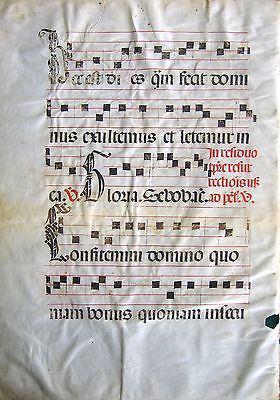 Hec est di es qm̄ fecit domi
nus exultemus et letemur in
In residuo
tp̄e resur
rectiõis us̃
ea. V. Gloria. Seuouae.
ad pēt. V.
Confitemini domino quo
niam bonus quoniam in secu